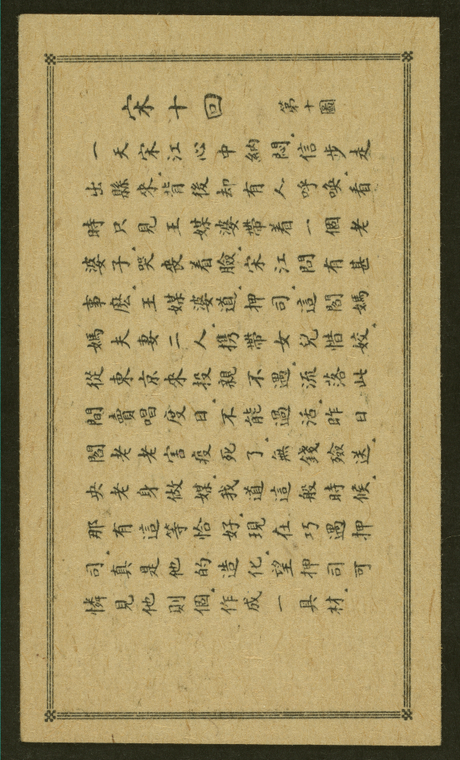 宋十回 第十圖
一天宋江心中納悶。信步走
出縣來。背後却有人呼喚。看
時只見王媒婆帶着一個老
婆子。哭喪着臉。宋江問有甚
事麽。王媒婆道。押司。這閻媽
媽夫妻二人。携帶女兒惜姣。
從東京來投親不遇。流落此
間賣唱度日。不能過活。昨日
閻老老害疫死了。無錢殮送。
央老身做媒。我道這般時候。
那有這等恰好。現在巧遇押
司。真是他的造化。望押司可
憐見他則個。作成一具材。